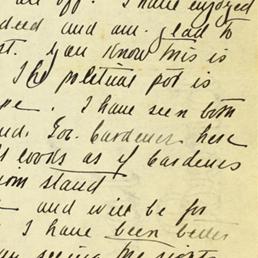 are off. I have enjoyed
deed and am glad to
st. You know this is
The political pot is
pe. I have seen both
nd. Gov. Gardener here
looks as if Gardener
stand
and will be for
I have been better
seeing the sights